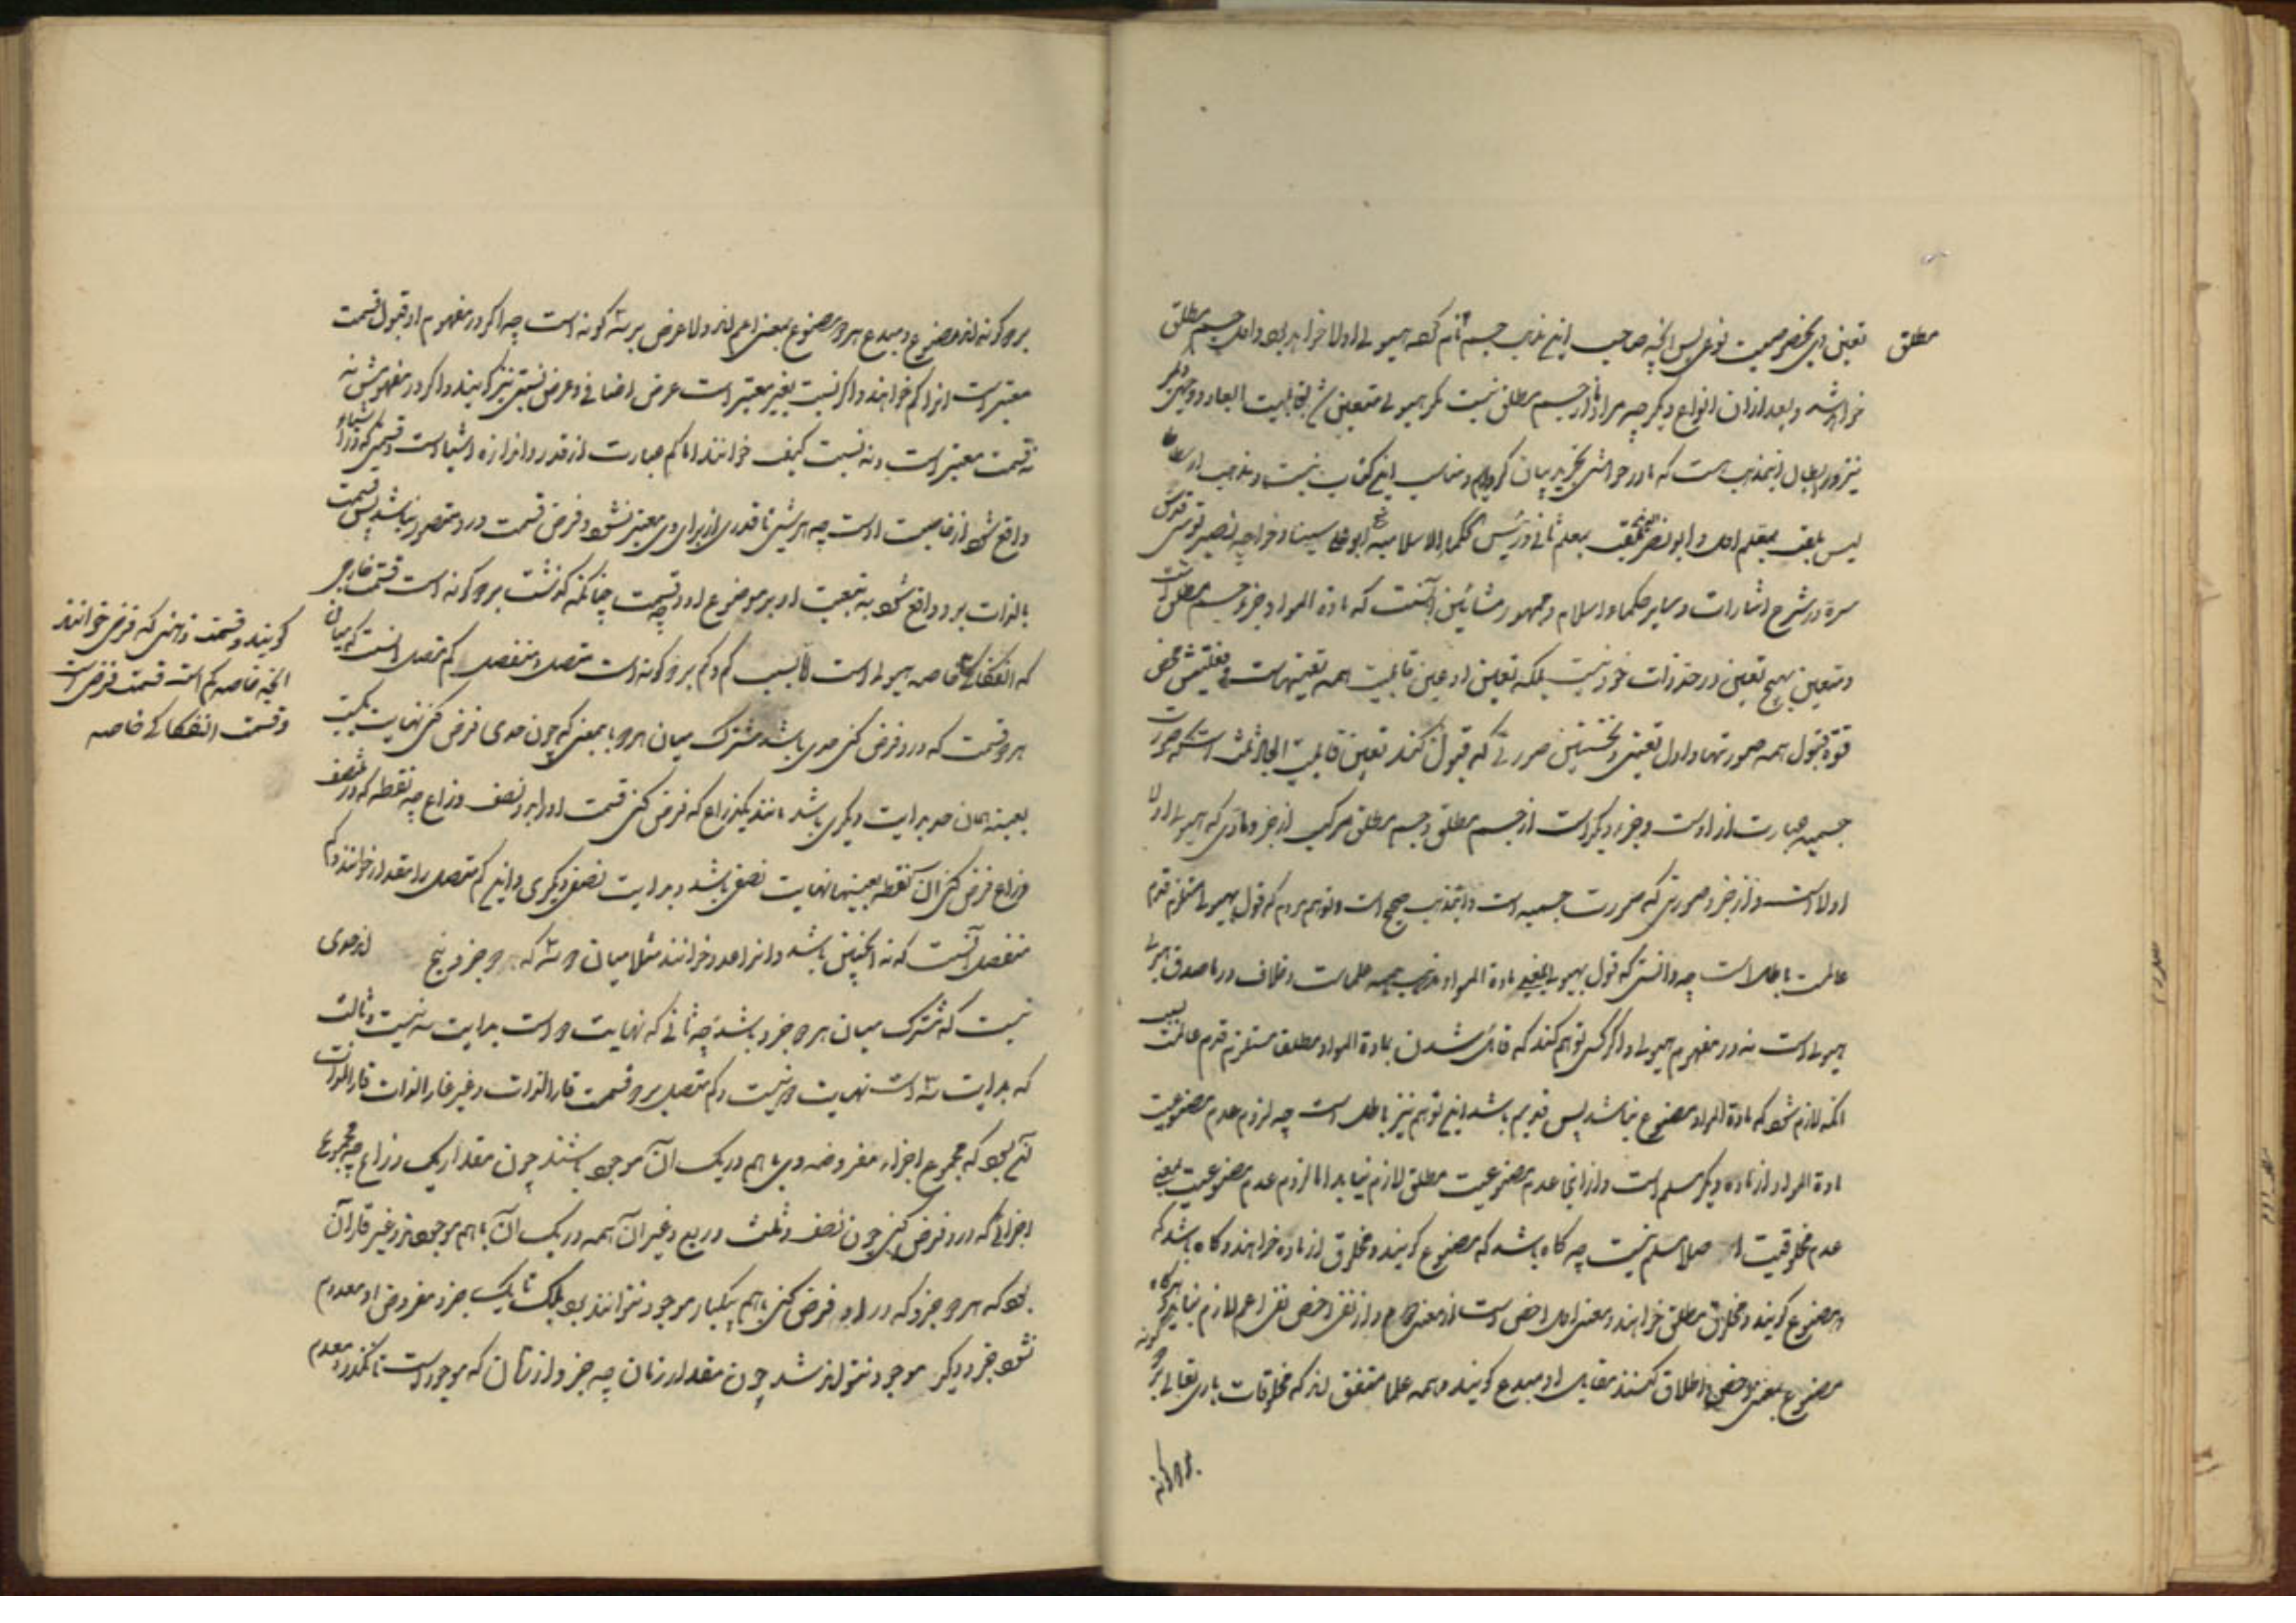 مطلق
تعین وی بخصوصیت نوعی پس آنچه صاحب این مذهب جسم نام کند هیولی اولا خواهد بود و اول جسم مطلق
خواهد شد و بعد از آن انواع دیگر چه مراد از جسم مطلق نیست مگر هیولی متعین بقابلیت ابعاد و وجهی دیگر
نیز در ابطال این مذهب هست که ما در حواشی تجرید بیان کرده‌ایم و مناسب این کتاب نیست و مذهب ارسطا
لیس ملقب بمعلم اول و ابونصر ملقب بمعلم ثانی و رئیس الحکماء الاسلامیه ابو علی سینا و خواجه نصیر توسی قدس
سره در شرح اشارات و سایر حکماء اسلام و جمهور مشائین آنست که مادة المواد جزو جسم مطلق است
و متعین بهیچ تعین در حد ذات خود نیست بلکه تعین او عین قابلیت همه تعینهاست فعلیتش محض
قوة قبول همه صورتها و اول تعینی و نخستین صورتی که قبول کند تعین قابلیت ابعاد ثلث است که صورت
جسمیه عبارت از اوست و جزو دیگر است از جسم مطلق و جسم مطلق مرکب از جزو مادی که هیولی اولا
اولا است و از جزو صوری که صورت جسمیه است و این مذهب صحیح است و توهم مردم که قول بهیولی مستلزم قدم
عالمست باطل است چه دانستی که قول بهیولی بمعنی مادة المواد مذهب همه علماست و خلاف در ما صدق
هیولی است نه در مفهوم هیولی و اگر کسی توهم کند که قائل شدن بمادة المواد مطلقا مستلزم قدم عالمست بسبب
آنکه لازم شود که مادة المواد مصنوع نباشد پس قدیم باشد این توهم نیز باطل است چه لزوم عدم مصنوعیت
مادة المواد از ماده دیگر مسلم است و از این عدم مصنوعیت مطلق لازم نیاید اما لزوم عدم مصنوعیت بمعنی
عدم مخلوقیت اصلا مسلم نیست چه گاه باشد که مصنوع گویند و مخلوق از ماده خواهند و گاه باشد که
مصنوع گویند و مخلوق مطلق خواهند و معنی اول اخص است از معنی دوم و از نفی اخص نفی اعم لازم نیاید و هرگاه
مصنوع بمعنی اخص اطلاق کنند مقابل او مبدع گویند و همه علما متفق‌اند که مخلوقات باری تعالی بر دو گونه
بر دو گونه
بر دو گونه‌اند مصنوع و مبدع هر دو مصنوع بمعنی اعم‌اند و اما عرض بر سه گونه است چه اگر در مفهوم او قبول قسمت
معتبر است او را کم خوانند و اگر نسبت بغیر معتبر است عرض اضافی و عرض نسبتی نیز گویند و اگر در مفهومش نه
قسمت معتبر است و نه نسبت کیف خوانند اما کم عبارت از قدر و اندازه اشیا است و قسمتی که در اشیاء
واقع شود از خاصیت اوست چه هر شی تا قدری از برای وی معتبر نشود فرض قسمت درو متصور نباشد پس قسمت
بالذات برو واقع شود به تبعیت او بر موضوع او و قسمت چنانکه گذشت بر دو گونه است قسمت خارجی
گویند و قسمت ذهنی که فرضی خوانند
آنچه خاصه کم است قسمت فرضی است
و قسمت انفکاکی خاصه
که انفکاکی خاصه هیولی است نه بسبب کم و کم بر دو گونه است متصل و منفصل کم متصل آنست که میان
هر دو قسمت که درو فرض کنی حدی باشد مشترک میان هر دو بمعنی که چون حدی فرض کنی نهایت یکیست
بعینه همان حد بدایت دیگری باشد مانند یک ذراع که فرض کنی قسمت او را بدو نصف ذراع چه نقطه که در منتصف
ذراع فرض کنی آن نقطه بعینها نهایت نصفی باشد و بدایت نصف دیگری و این کم متصل را مقدار خوانند و کم
منفصل آنست که نه اینچنین باشد و او را عدد خوانند مثلا میان دو و سه که دو جزو پنج‌اند حدی
نیست که مشترک میان هر دو جزو باشد چه ثانی که نهایت دو است بدایت سه نیست و ثالث
که بدایت سه است نهایت دو نیست و کم متصل بر دو قسمت قار الذات و غیر قار الذات قار الذات
آن بود که مجموع اجزاء مفروضه وی با هم در یک آن موجود باشند چون مقدار یک ذراع چه مجموع
اجزائی که درو فرض کنی چون نصف و ثلث و ربع و غیر آن همه در یک آن با هم موجودند و غیر قار آن
بود که هر دو جزو که درو فرض کنی با هم بیکبار موجود نتوانند بود بلکه تا یک جزو مفروض او معدوم
نشود جزو دیگر موجود نتواند شد چون مقدار زمان چه جزو از زمان که موجود است تا نگذرد و معدوم